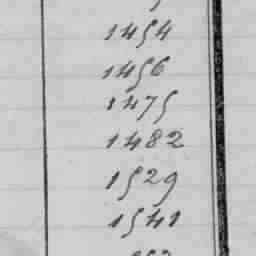 1454
1456
1475
1482
1529
1541